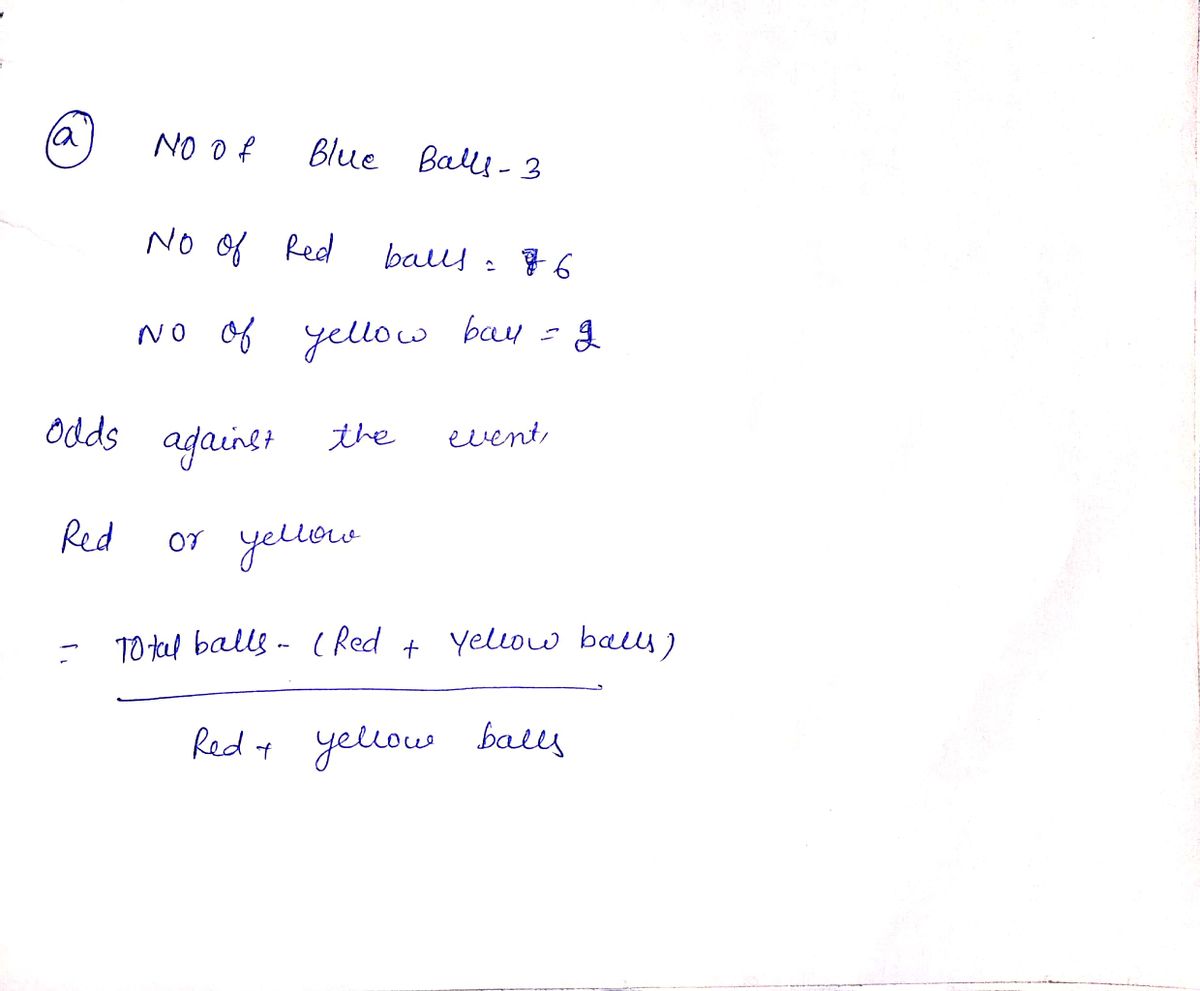 a
No of Blue Balls - 3
No of Red balls = 6
No of yellow ball =
Odds against the event,
Red or yellow
= Total balls - (Red + Yellow balls)
Red + yellow balls